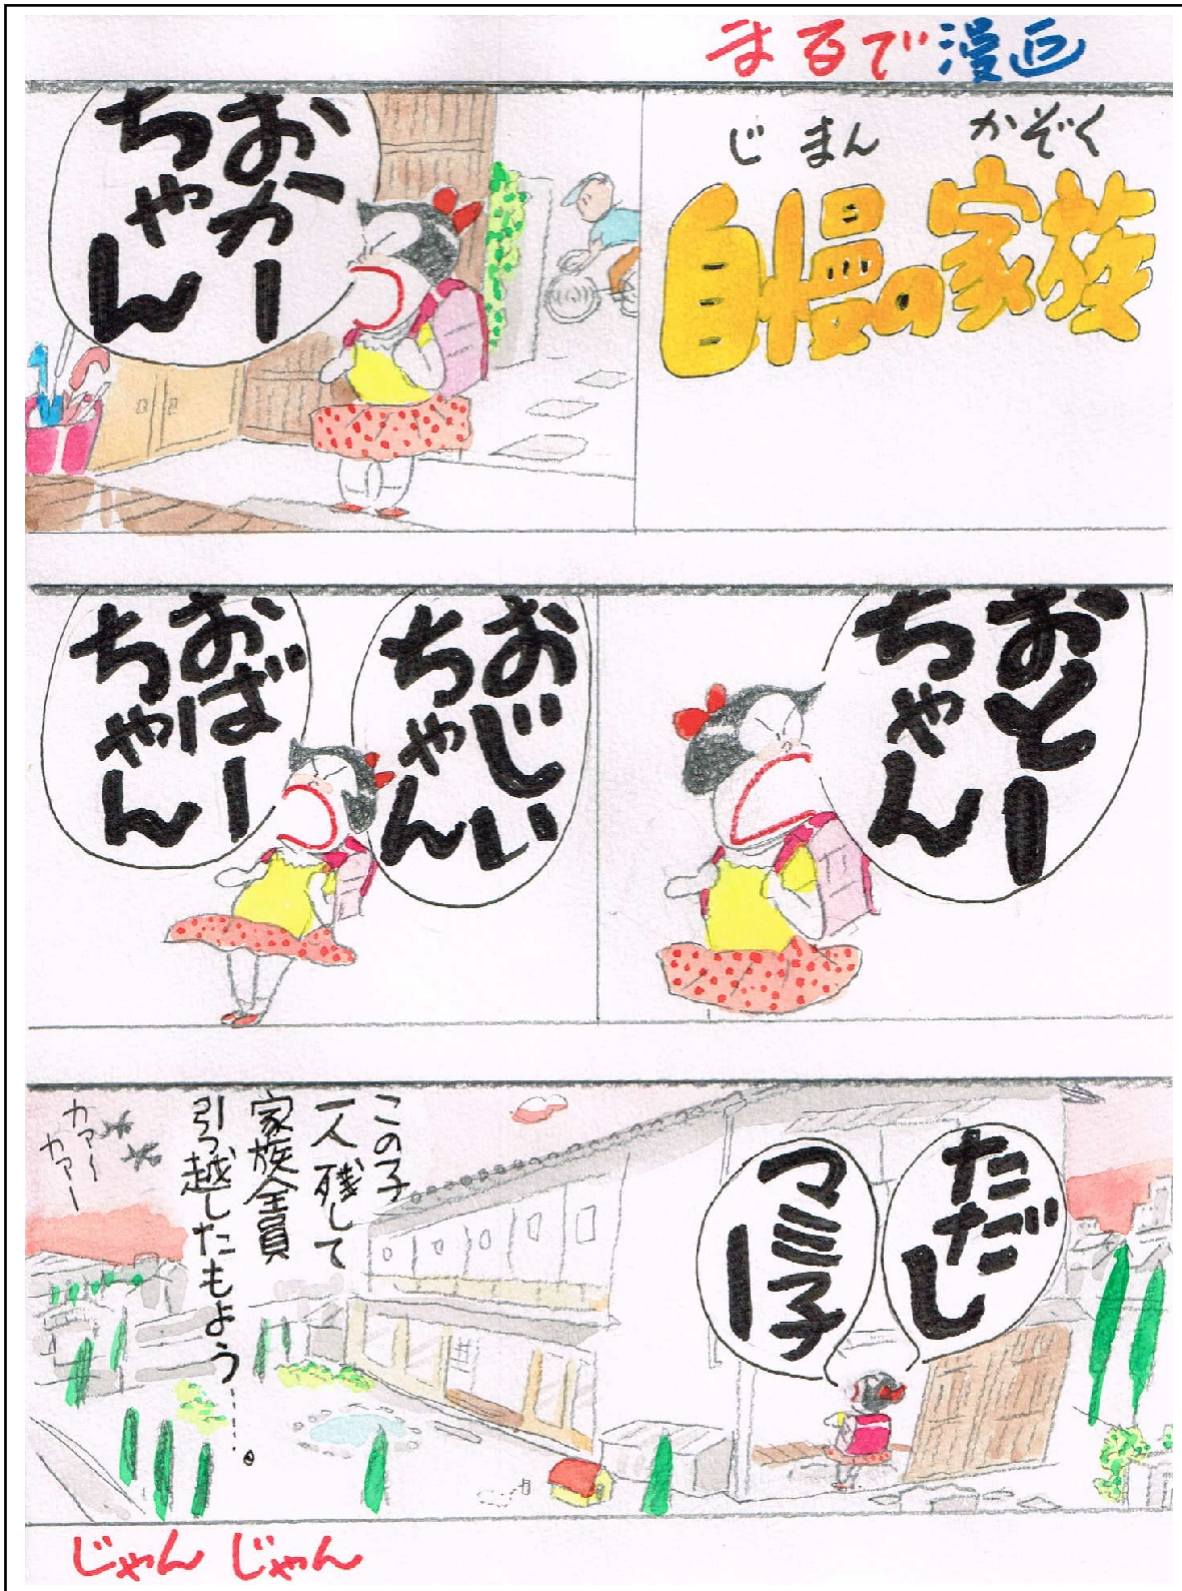 まるで漫画
じまん かぞく
自慢の家族
おかー
ちゃん
おとー
ちゃん
おじい
ちゃん
おばー
ちゃん
ただし
マミ子ー
この子
一人残して
家族全員
引っ越したもよう……。
カアー
カアー
じゃんじゃん